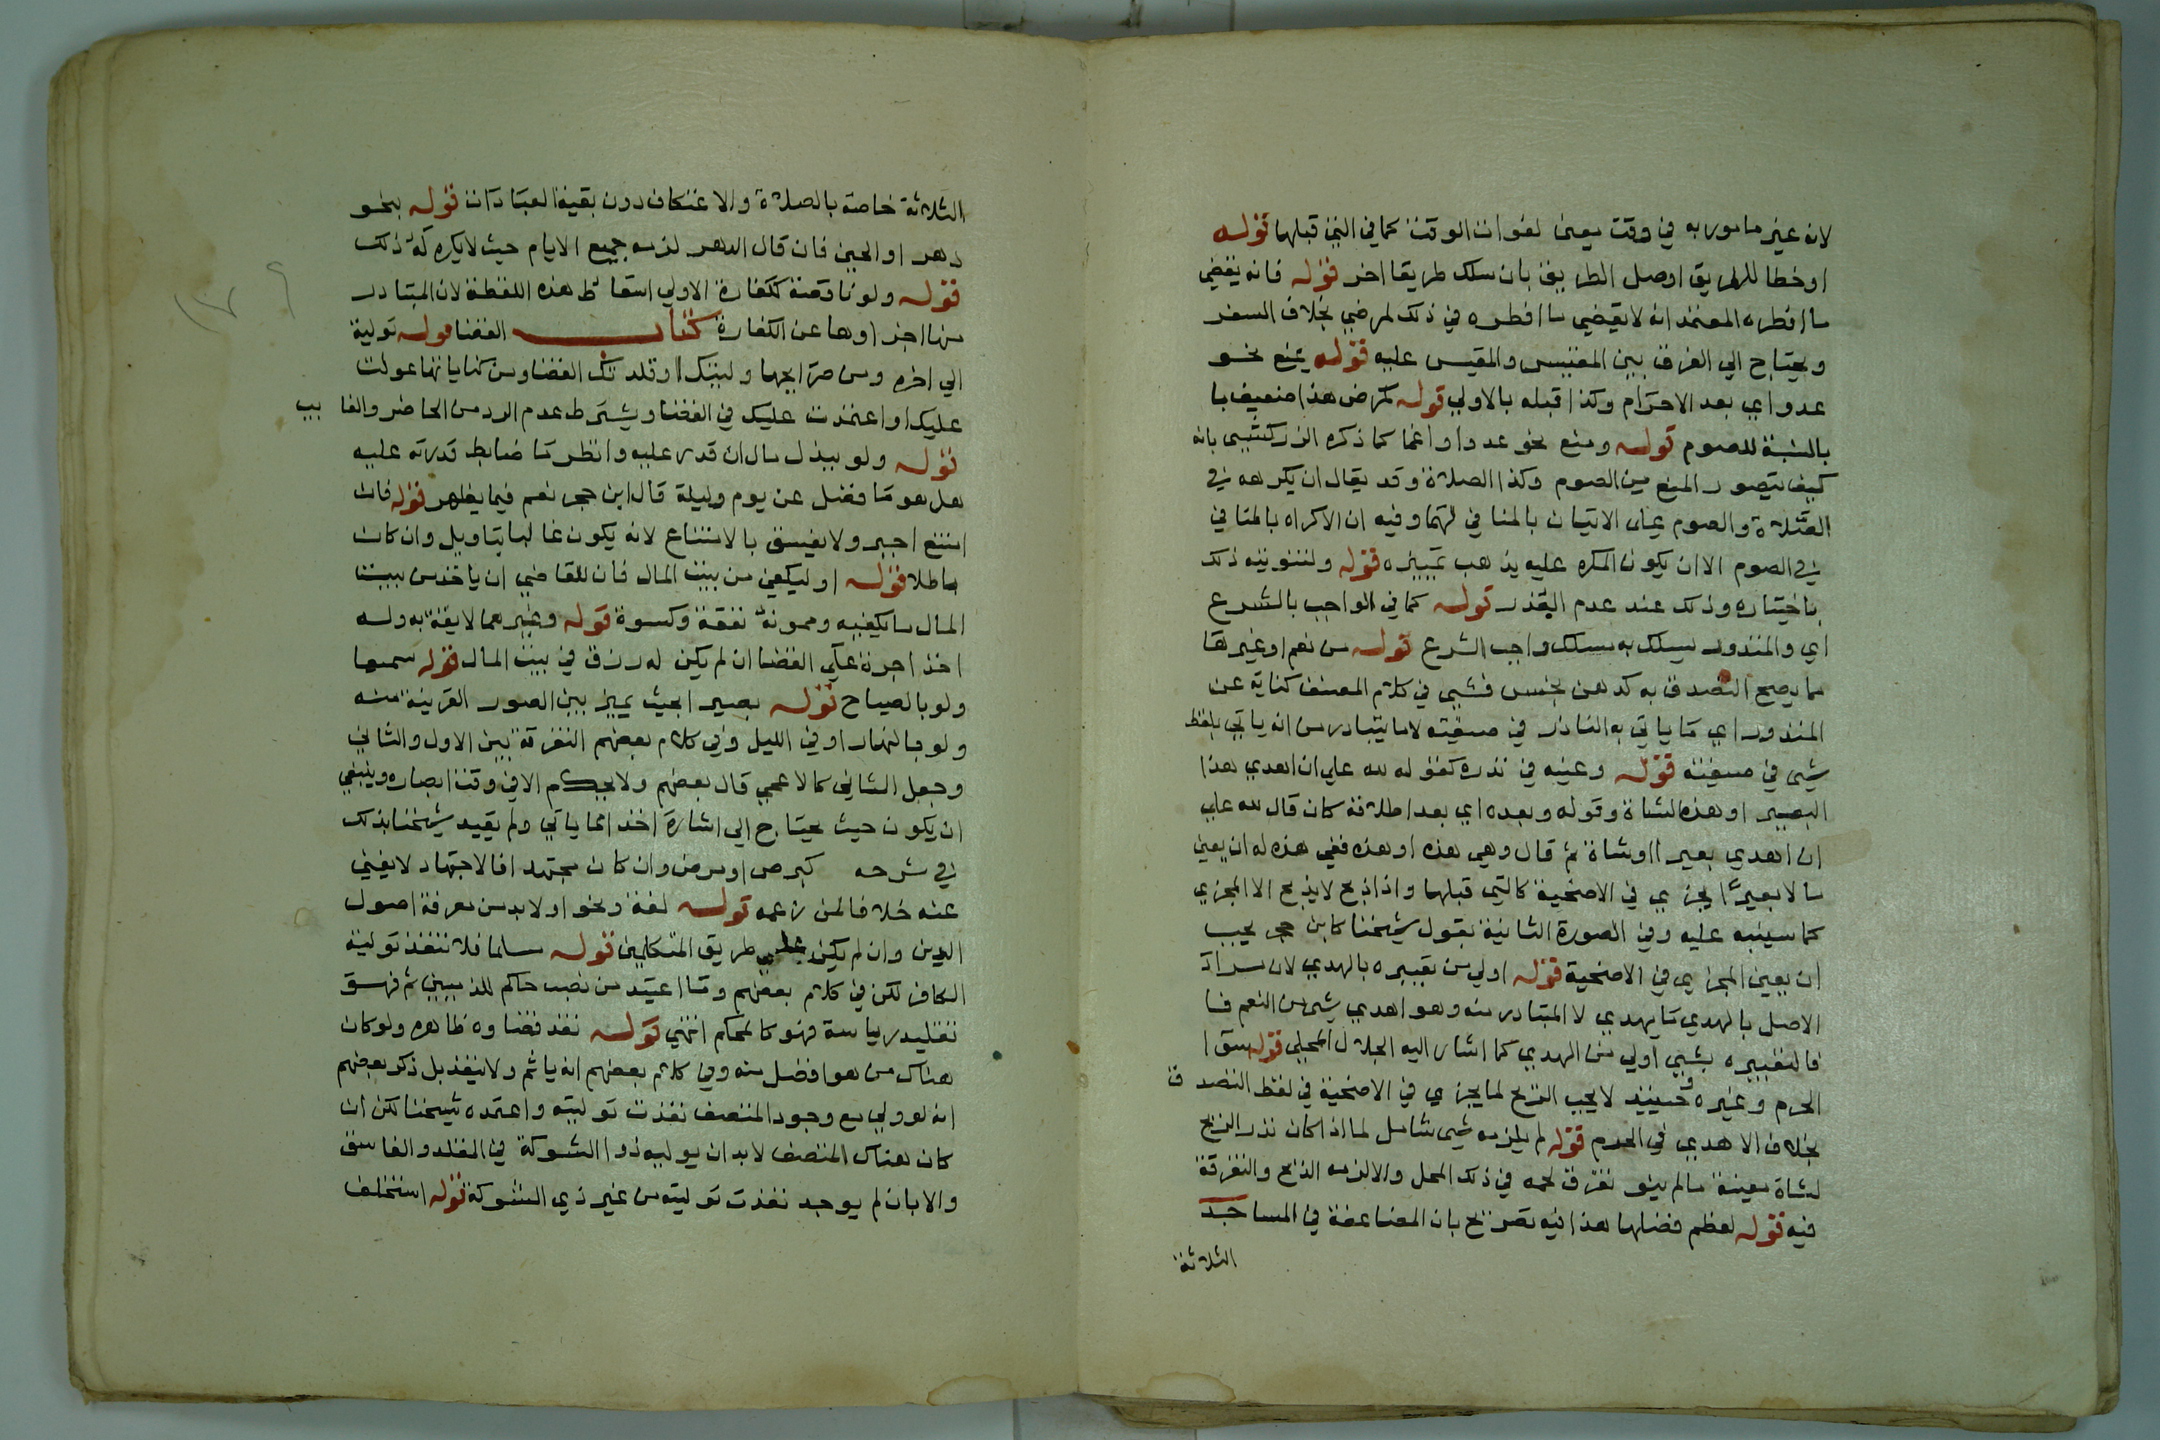 لانه غير مامور به في وقت معين لفوات الوقت كما في التي قبلها قوله
او خطا للطريق او ضل الطريق بان سلك طريقا اخر قوله فانه يقضي
ما افطره المعتمد انه لا يقضي ما افطره في ذلك لمرضي بخلاف السفر
ويحتاج الي الفرق بين المقيس والمقيس عليه قوله يمنع نحو
عدو اي بعد الاحرام وكذا قبله بالاولي قوله كمرض هذا ضعيف با
بالنسبة للصوم قوله ومنع نحو عدو او اغما كما ذكره الزركشي بانه
كيف يتصور المنع من الصوم وكذا الصلاة وقد يقال ان يكرهه في
الصلاة والصوم علي الاتيان بالمنافي لهما وفيه ان الاكراه بالمنافي
في الصوم الا ان يكون المكره عليه يذهب تمييزه قوله ولتفويته ذلك
باختياره وذلك عند عدم العذر قوله كما في الواجب بالشرع
اي والمنذور يسلك به مسلك واجب الشرع قوله من نعم او غيرها
مما يصح التصدق به كدهن نجس فشي في كلام المصنف كناية عن
المنذور اي ما ياتي به الناذر في صيغته لا ما يتبادر من انه ياتي بلفظ
شي في صيغته قوله وعينه في نذره كقوله لله علي ان اهدي هذا
البعير او هذه الشاة وقوله وبعده اي بعد اطلاقه كان قال لله علي
ان اهدي بعيرا او شاة ثم قال وهي هذه او هذه ففي هذه له ان يعين
ما لا بعيرا يجزي في الاضحية كالتي قبلها واذا ذبح لا يذبح الا المجزي
كما سينبه عليه وفي الصورة الثانية يقول شيخنا كابن حجر يجب
ان يعين المجزي في الاضحية قوله اولي من تعبيره بالهدي لان مراد
الاصل بالهدي ما يهدي لا المتبادر منه وهو اهدي شي من النعم فا
فالتعبيره بشي اولي من الهدي كما اشار اليه الجلال المحلي قوله سوا
الحرم وغيره وحينيذ لا يجب الذبح لما يجزي في الاضحية في لفظ التصدق
بخلاف الاهدي في الحرم قوله لم يلزمه شي شامل لما اذا كان نذر الذبح
لشاة معينة ما لم ينو تفرق لحمه في ذلك المحل والا لزمه الذبح والتفرقة
فيه قوله لعظم فضلها هذا فيه تصريح بان المضاعفة في المساجد
الثلاثة
الثلاثة خاصة بالصلاة والاعتكاف دون بقية العبادات قوله بنحو
دهر او الحين فان قال الدهر لزمه جميع الايام حيث لا يكره له ذلك
قوله ولو ناقصة ككفارة الاولي اسقاط هذه اللفظة لان المتبادر
منها اجزاوها عن الكفارة كتاب القضا قوله تولية
الي اخره ومن صرايحها وليتك او قلدتك القضا ومن كناياتها عولت
عليك او اعتمدت عليك في القضا ويشترط عدم الرد من الحاضر والغايب
قوله ولو ببذل مال ان قدر عليه وانظر ما ضابط قدرته عليه
هل هو ما فضل عن يوم وليلة قال ابن حجر نعم فيما يظهر قوله فان
امتنع اجبر ولا يفسق بالامتناع لانه يكون غالبا بتاويل وان كان
باطلا قوله او ليكفي من بيت المال فان للقاضي ان ياخذ من بيت
المال ما يكفيه وممونه نفقة وكسوة قوله وغيرهما لايقة به وله
اخذ اجرة علي القضا ان لم يكن له رزق في بيت المال قوله سميعا
ولو بالصياح قوله بصيرا بحيث يميز بين الصور القريبة منه
ولو بالنهار او في الليل وفي كلام بعضهم التفرقة بين الاول والثاني
وجعل الثاني كالاعمي قال بعضهم ولا يحكم الا في وقت ابصاره وينبغي
ان يكون حيث يحتاج الي اشارة اخذا مما ياتي ولم يقيد شيخنا بذلك
في شرحه كبرص او مرض وان كان مجتهدا فالاجتهاد لا يغني
عنه خلافا لمن زعمه قوله لغة ونحوا ولا بد من معرفة اصول
الدين وان لم يكن علي طريق المتكلمين قوله مسلما فلا تنفذ تولية
الكافر لكن في كلام بعضهم وما اعتيد من نصب حاكم للذميين ثم فهو
تقليد رياسة فهو كالمحكم انتهي قوله نفذ قضاوه ظاهره ولو كان
هناك من هو افضل منه وفي كلام بعضهم انه ياثم ولا ينفذ بل ذكر بعضهم
انه لو ولي مع وجود المتصف نفذت توليته واعتمده شيخنا لكن ان
كان هناك المتصف لا بد ان يوليه ذوا الشوكة في المقلد والفاسق
والا بان لم يوجد نفذت توليته من غير ذي الشوكة قوله استخلف